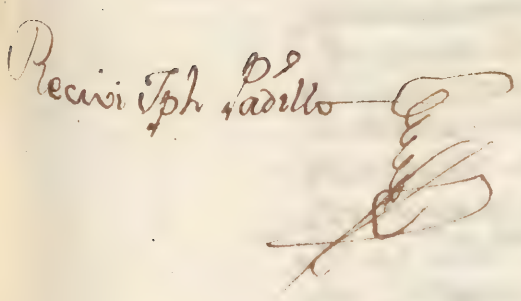 Recivi Jph Padillo